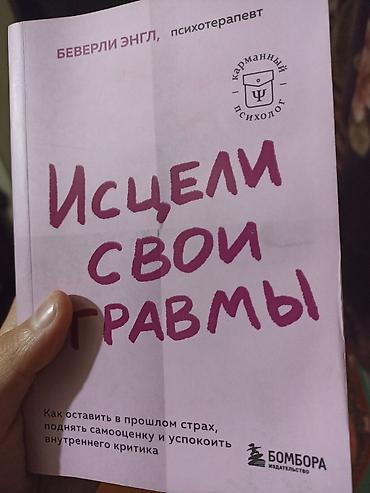 БЕВЕРЛИ ЭНГЛ, психотерапевт
карманный
Ψ
психолог
Исцели
свои
травмы
Как оставить в прошлом страх,
поднять самооценку и успокоить
внутреннего критика
БОМБОРА
ИЗДАТЕЛЬСТВО